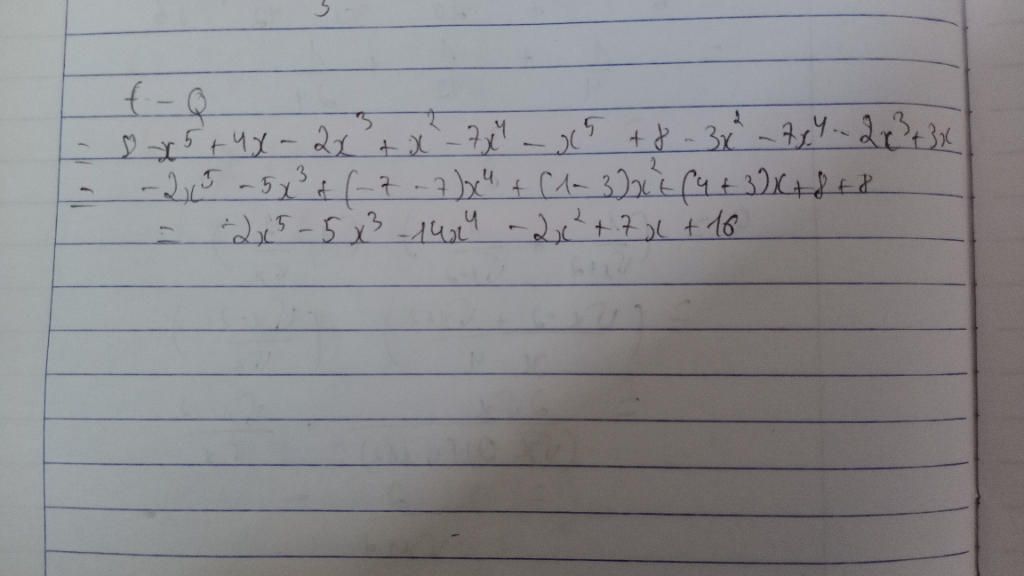 f - Q
= 8 - x⁵ + 4x - 2x³ + x² - 7x⁴ - x⁵ + 8 - 3x² - 7x⁴ - 2x³ + 3x
= - 2x⁵ - 5x³ + (-7 - 7)x⁴ + (1 - 3)x² + (4 + 3)x + 8 + 8
= -2x⁵ - 5x³ - 14x⁴ - 2x² + 7x + 16